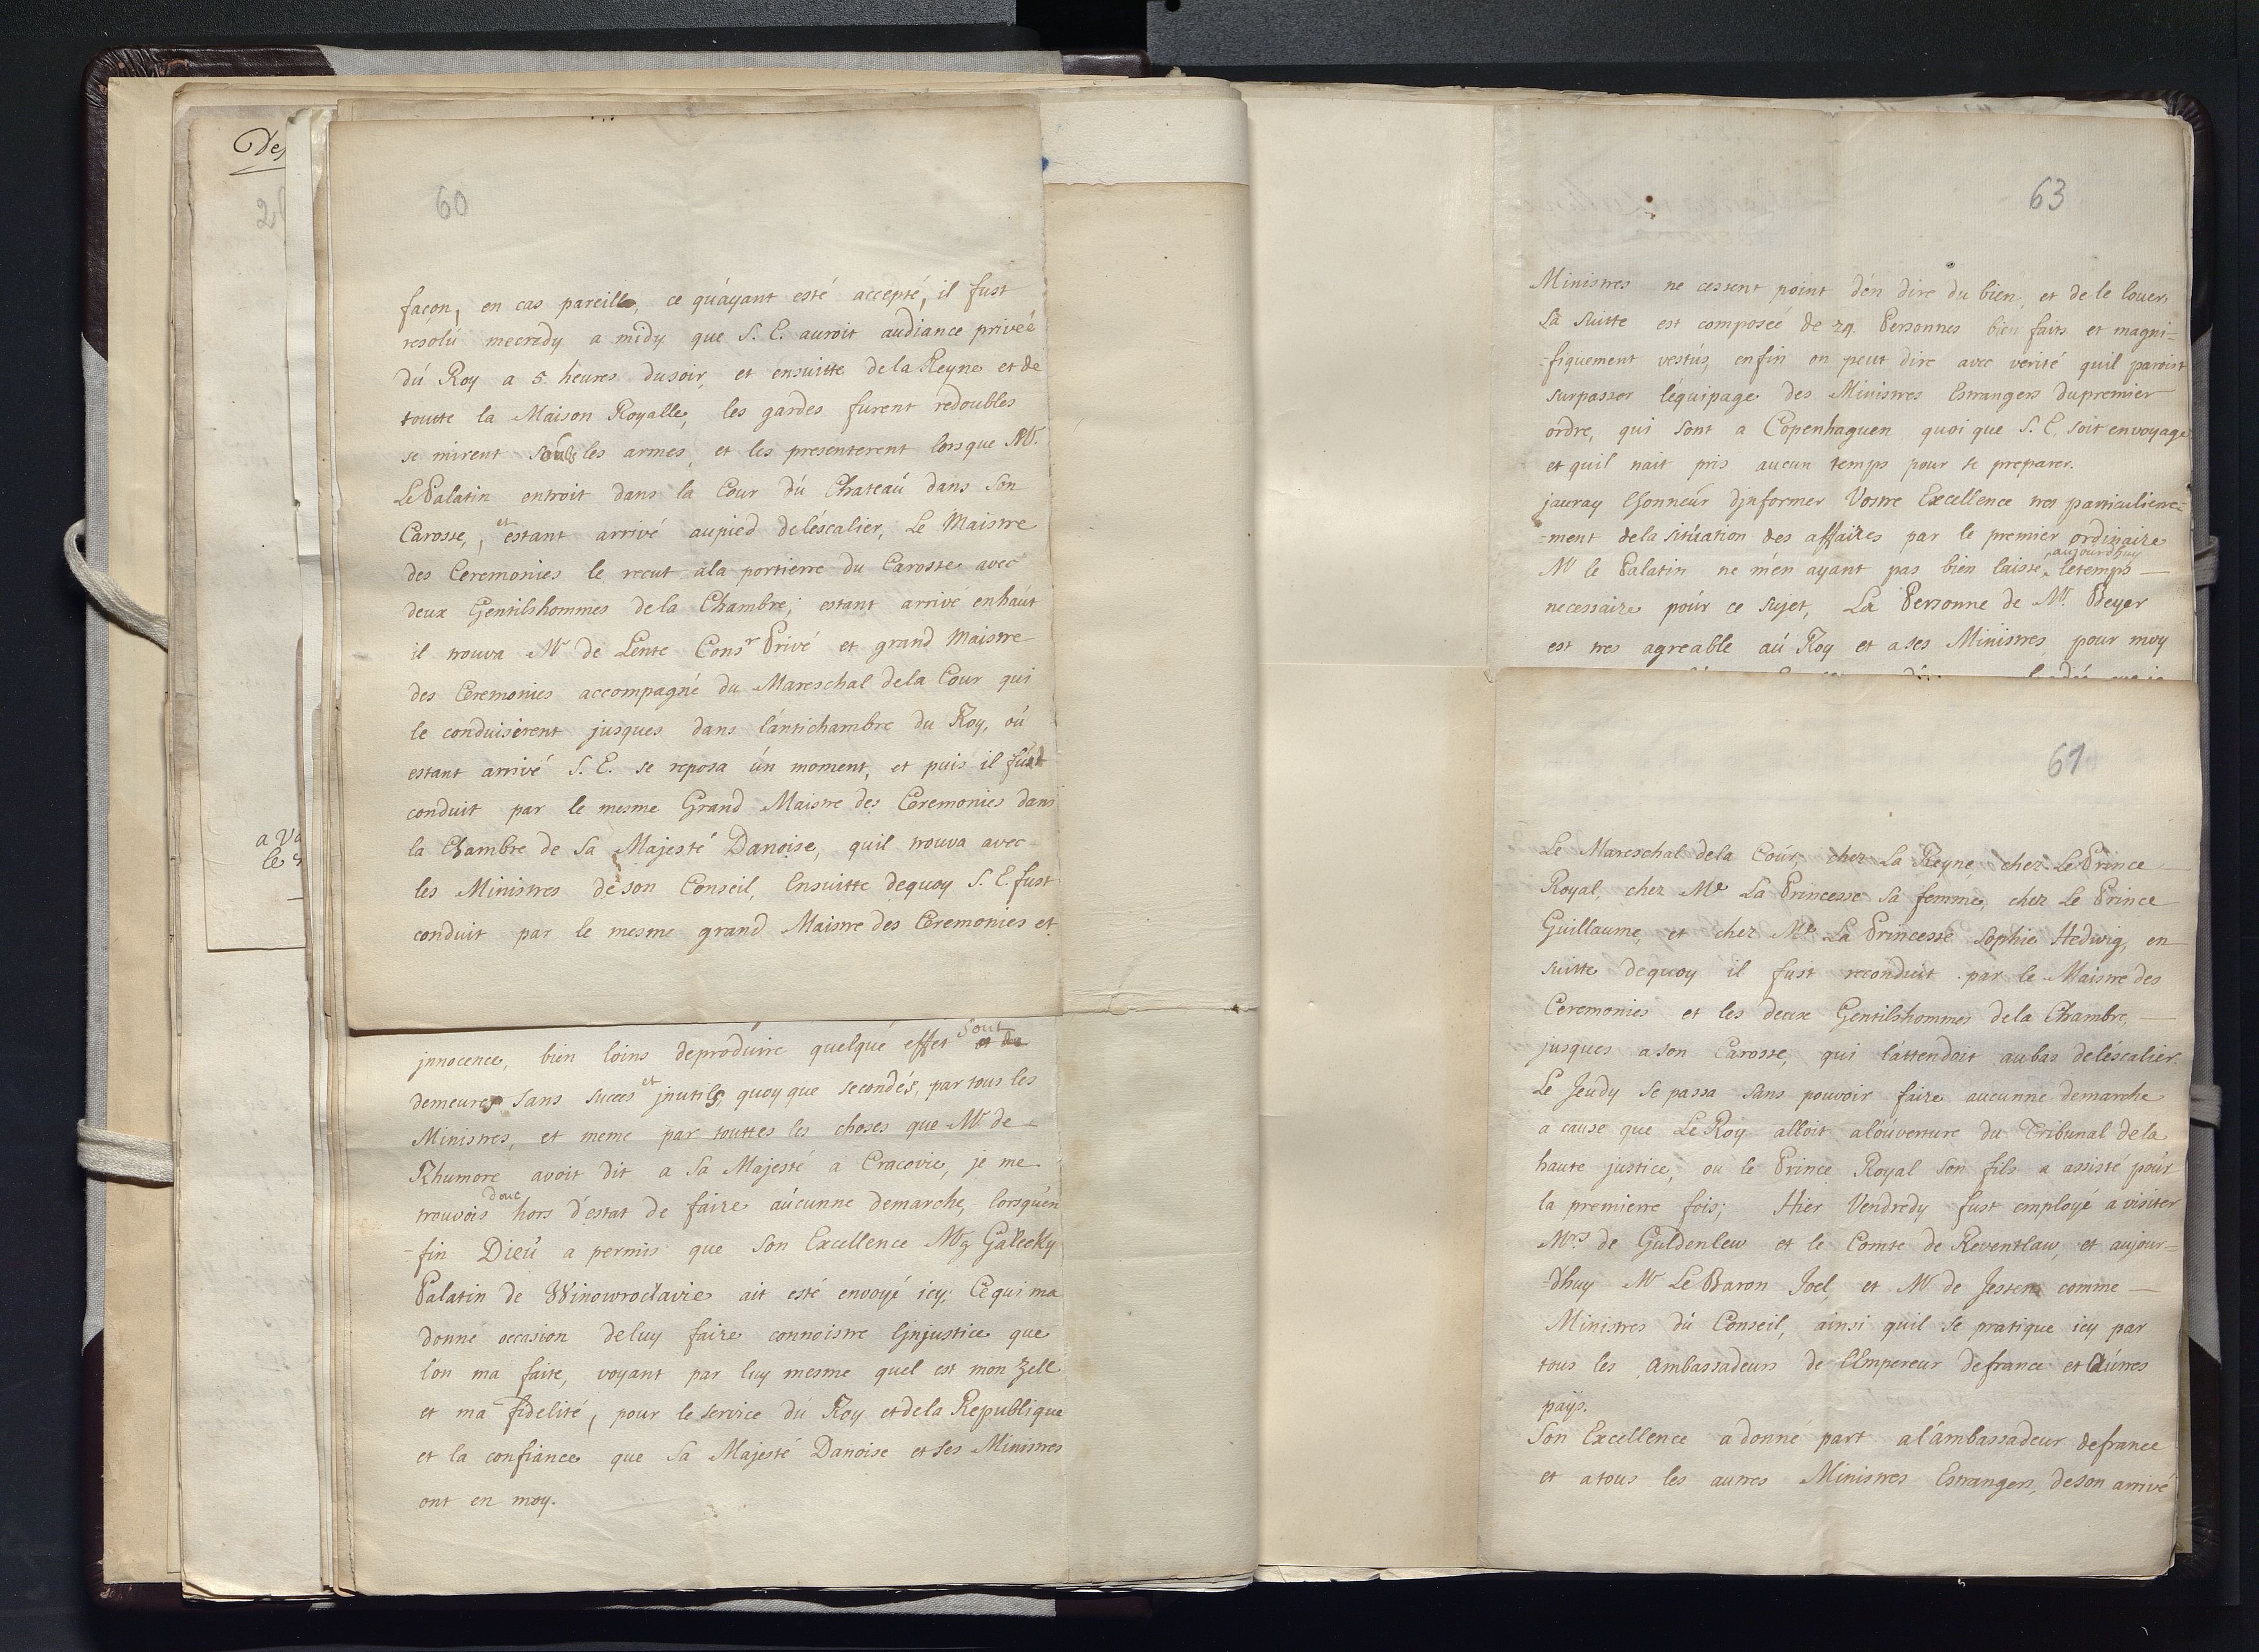 Des
2
a Va
le
60
façon, en cas pareille, ce qu'ayant esté accepté, il fust
resolú mecredy a midy que S. E. auroit audiance privéé
dú Roy a 5. heures dusoir, et ensuitte dela Reyne et de
toutte la Maison Royalle, les gardes furent redoubles
se mirent sous les armes, et les presenterent lorsque Mr.
Le Palatin entroit dans la Cour dú Chateaú dans son
Carosse, et estant arrivé aupied deléscalier, Le Maistre
des Ceremonies le recut ala portierre du Carosse avec
deux Gentilshommes dela Chambre; estant arrivé enhaút
il trouva Mr de Lente Consr Privé et grand Maistre
des Ceremonies accompagné du Mareschal dela Cour qui
le conduisirent jusques dans lántichambre du Roy, oú
estant arrivé S. E. se reposa ún moment, et puis il fust
conduit par le mesme Grand Maistre des Ceremonies dans
la Chambre de Sa Majesté Danoise, quil trouva avec
les Ministres de son Conseil, Ensuitte dequoy S. E. fust
conduit par le mesme grand Maistre des Ceremonies et
jnnocence, bien loins deproduire quelque effet sont et de
demeurer sans succes et jnutils, quoy que secondés, par tous les
Ministres, et meme par touttes les choses que Mr. de
Rhumore avoit dit a Sa Majesté a Cracovie, je me
trouvois donc hors d'estat de faire aúcunne demarche, lorsqu'en
-fin Dieú a permis que Son Excellence Mg Galecky
Palatin de Winowroclavie ait esté envoyé icy; Ce qui ma
donné occasion deluy faire connoistre l'jnjustice que
lón ma faite, voyant par luy mesme quel est mon Zelle
et ma fidelité, pour le service du Roy et dela Republique
et la confiance que Sa Majesté Danoise et ses Ministres
ont en moy.
63
Ministres ne cessent point d'én dire du bien, et de le louer,
Sa Suitte est composeé de 24. Personnes bien faits et magni-
-fiquement vestús, enfin on peut dire avec verité quil paroist
surpasser léquipage des Ministres Estrangers dupremier
ordre, qui sont a Copenhaguen quoi que S. E. soit envoyage
et quil nait pris aucun temps pour se preparer.
jauray l'honneúr d'jnformer Vostre Excellence tres particulierre-
-ment dela sitúation des affaires par le premier ordinaire
Mr le Palatin ne m'én ayant pas bien laissé aujourdhuy letemps
necessaire poúr ce sujet, La Personne de Mr. Beyer
est tres agreable aú Roy et a ses Ministres, pour moy
61
Le Mareschal dela Coúr, chez La Reyne, chez Le Prince
Royal, chez Me La Princesse sa femme, chez Le Prince
Guillaume, et chez Me La Princesse Sophie Hedwig, en
suitte dequoy il fust reconduit par le Maistre des
Ceremonies et les deux Gentilshommes dela Chambre,
jusques a son Carosse, qui láttendoit aubas deléscalier.
Le Jeudy se passa sans pouvoir faire aucunne demarche
a cause que Le Roy alloit alóuverture du Tribunal dela
haute justice, ou le Prince Royal son fils a assisté poúr
la premierre fois; Hier Vendredy fust employé a visiter
Mrs de Guldenlew et le Comte de Reventlaw, et aujour-
-d'huy Mr Le Baron Joel, et Mr de Jessen comme
Ministres dú Conseil, ainsi quil se pratique icy par
tous les Ambassadeurs de l'Empereur defrance et d'aútres
pays.
Son Excellence a donné part a lámbassadeur defrance
et a tous les autres Ministres Estrangers, deson arrivé